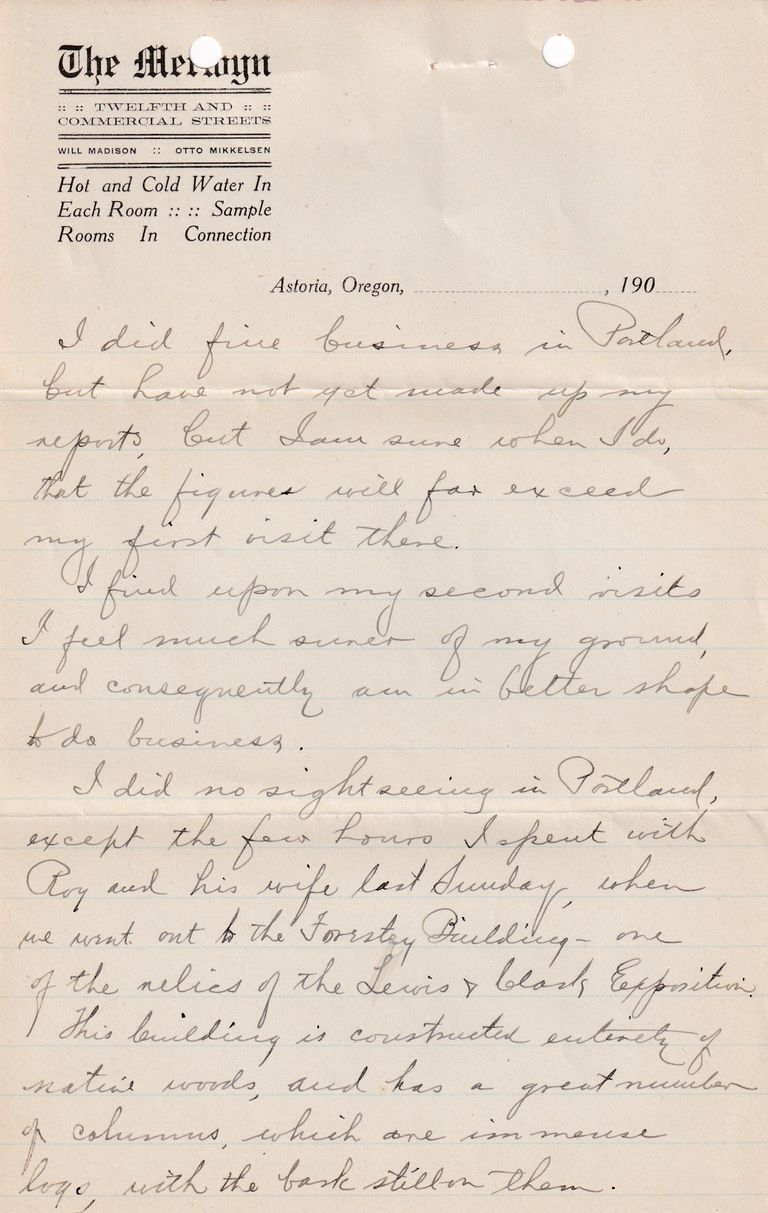 The Merwyn
:: :: TWELFTH AND :: ::
COMMERCIAL STREETS
WILL MADISON :: OTTO MIKKELSEN
Hot and Cold Water In
Each Room :: :: Sample
Rooms In Connection
Astoria, Oregon, ........................, 190......
I did fine business in Portland,
but have not yet made up my
reports, but I am sure when I do,
that the figures will far exceed
my first visit there.
I find upon my second visits
I feel much surer of my ground,
and consequently am in better shape
to do business.
I did no sightseeing in Portland,
except the few hours I spent with
Roy and his wife last Sunday, when
we went out to the Forestry Building - one
of the relics of the Lewis & Clark Exposition.
This building is constructed entirely of
native woods, and has a great number
of columns, which are immense
logs, with the bark still on them.